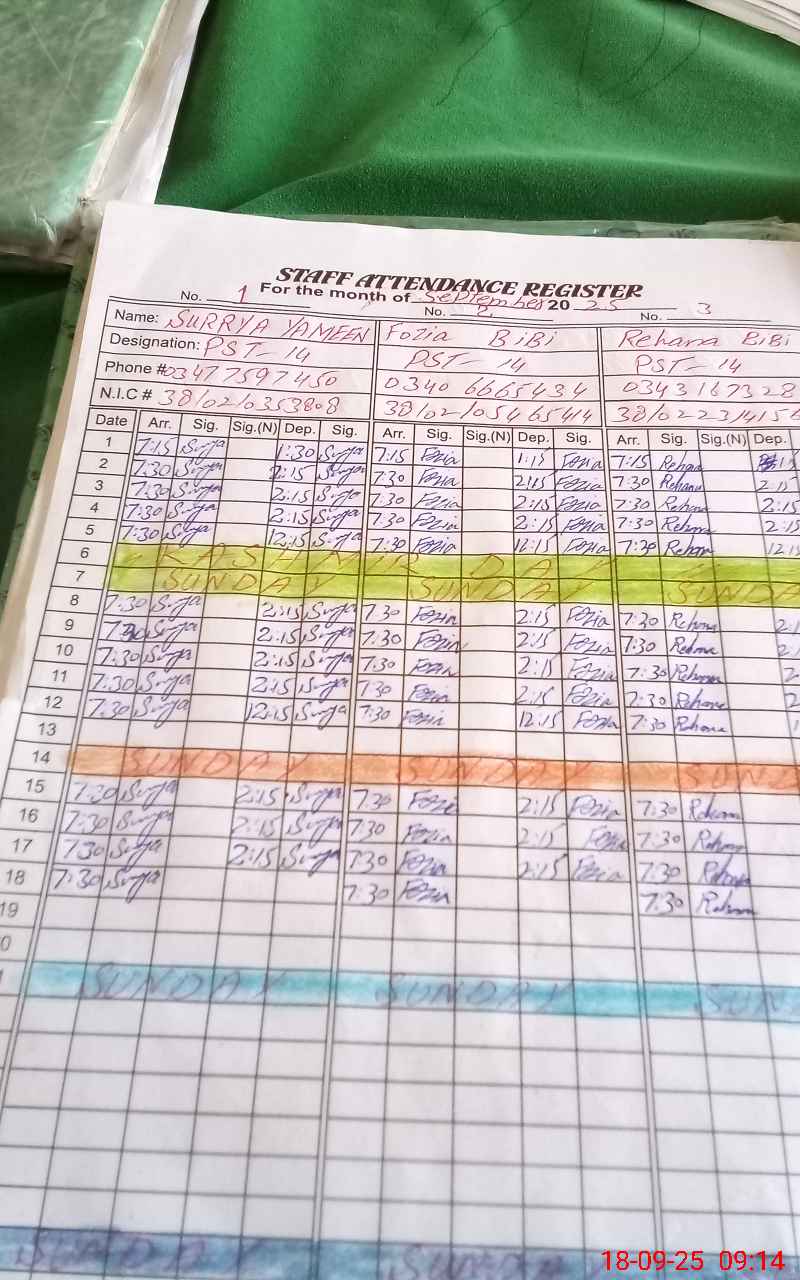 STAFF ATTENDANCE REGISTER
For the month of September 2025
No. 1 No. 2 No. 3
Name: SURRYA YAMEEN Fozia BiBi Rehana BiBi
Designation: PST-14 PST-14 PST-14
Phone # 03477597450 0340 6665434 0343167328
N.I.C # 38102
Date Arr. Sig. Sig.(N) Dep. Sig. Arr. Sig. Sig.(N) Dep. Sig. Arr. Sig. Sig.(N) Dep.
1 7:15 Surya 1:30 Surya 7:15 Fozia 1:15 Fozia 7:15 Rehana
2 7:30 Surya 2:15 Surya 7:30 Fozia 2:15 Fozia 7:30 Rehana 2:15
3 7:30 Surya 2:15 Surya 7:30 Fozia 2:15 Fozia 7:30 Rehana 2:15
4 7:30 Surya 2:15 Surya 7:30 Fozia 2:15 Fozia 7:30 Rehana 2:15
5 7:30 Surya 12:15 Surya 7:30 Fozia 12:15 Fozia 7:30 Rehana 12:15
6 KASHMIR DAY
7 SUNDAY SUNDAY SUNDA
8 7:30 Surya 2:15 Surya 7:30 Fozia 2:15 Fozia 7:30 Rehana
9 7:30 Surya 2:15 Surya 7:30 Fozia 2:15 Fozia 7:30 Rehana
10 7:30 Surya 2:15 Surya 7:30 Fozia 2:15 Fozia 7:30 Rehana
11 7:30 Surya 2:15 Surya 7:30 Fozia 2:15 Fozia 7:30 Rehana
12 7:30 Surya 12:15 Surya 7:30 Fozia 12:15 Fozia 7:30 Rehana
13
14 SUNDAY SUNDAY SUND
15 7:30 Surya 2:15 Surya 7:30 Fozia 2:15 Fozia 7:30 Rehana
16 7:30 Surya 2:15 Surya 7:30 Fozia 2:15 Fozia 7:30 Rehana
17 7:30 Surya 2:15 Surya 7:30 Fozia 2:15 Fozia 7:30 Rehana
18 7:30 Surya 7:30 Fozia 7:30 Rehana
19
0
SUNDAY SUNDAY SUN
SUNDAY SUNDAY
18-09-25 09:14